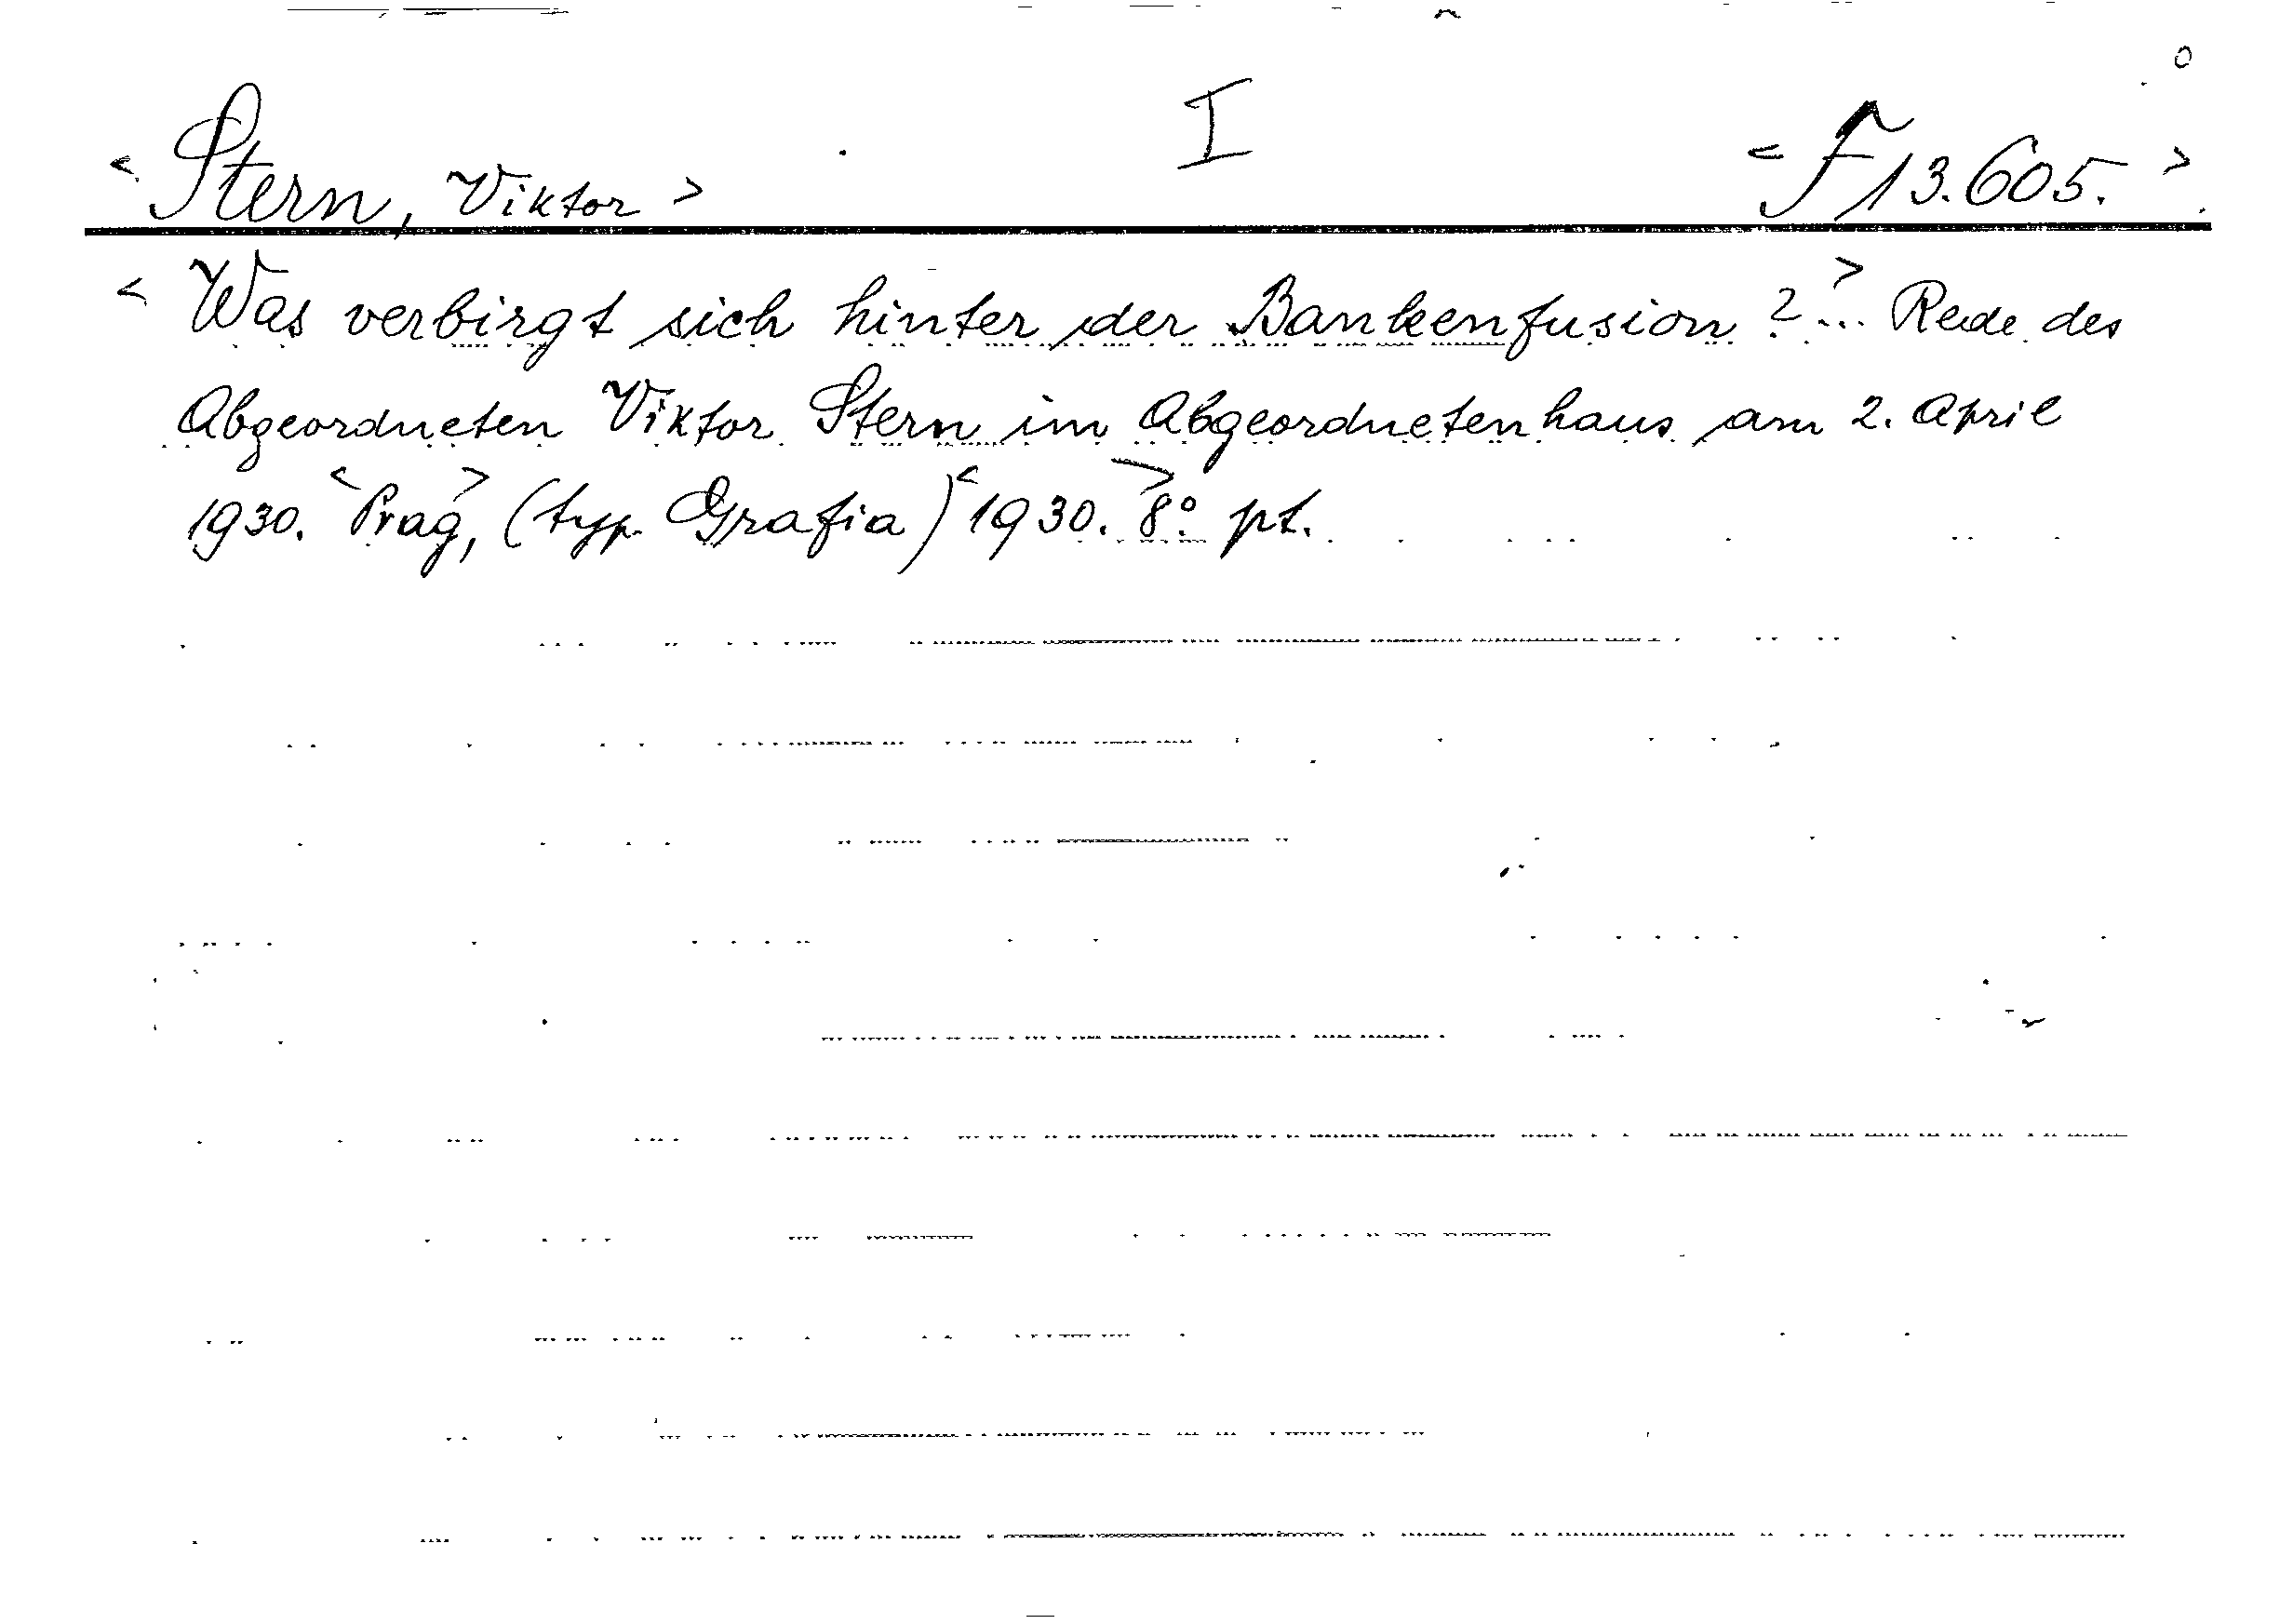 < Stern, Viktor > I < F 13.605. >
< Was verbirgt sich hinter der Bankenfusion ? > ... Rede des
Abgeordneten Viktor Stern im Abgeordnetenhaus am 2. April
1930. < Prag, > (typ. Grafia) < 1930. > 8° pt.